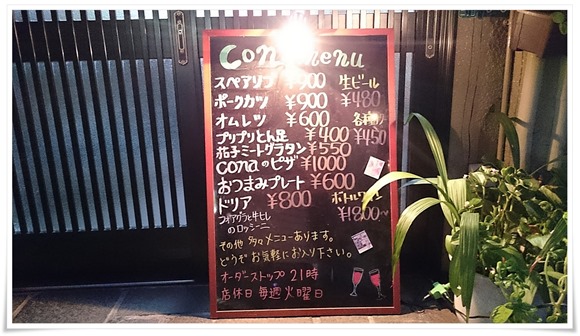 cona menu
スペアリブ ¥900 生ビール
ポークカツ ¥900 ¥480
オムレツ ¥600
プリプリとん足 ¥400 ¥450
茄子ミートグラタン ¥550
conaのピザ ¥1000
おつまみプレート ¥600
ドリア ¥800 ボトルワイン
フォアグラと牛ヒレ ¥1800~
のロッシーニ
その他 多々メニューあります。
どうぞ お気軽にお入り下さい。
オーダーストップ 21時
店休日 毎週火曜日